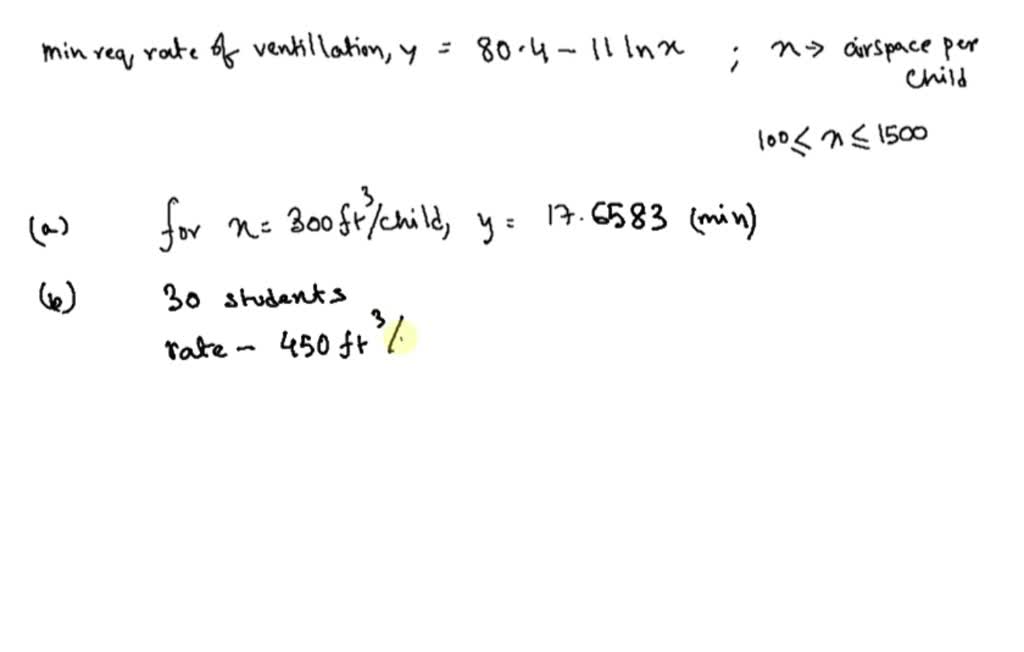 min req rate of ventillation, y = 80.4 - 11 ln x ; x → airspace per child
100 ≤ x ≤ 1500
(a) for x = 300 ft³/child, y = 17.6583 (min)
(b) 30 students
rate - 450 ft³/